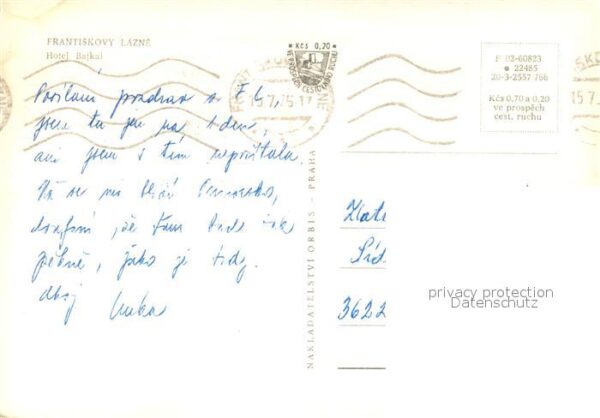 FRANTIŠKOVY LÁZNĚ
Hotel Bajkal
Kčs 0,70
15.7.75-17
F 02-60823
● 22485
20-3-2557 766
Kčs 0,70 a 0,20
ve prospěch
cest. ruchu
Posílám pozdrav z F. L.,
jsem tu jen na týden,
ani jsem s tím nepočítala.
Už se mi blíží
doufám, že tam bude tak
pěkně, jako je tady.
NAKLADATELSTVÍ ORBIS - PRAHA
Zlat
Síd
3622
privacy protection
Datenschutz